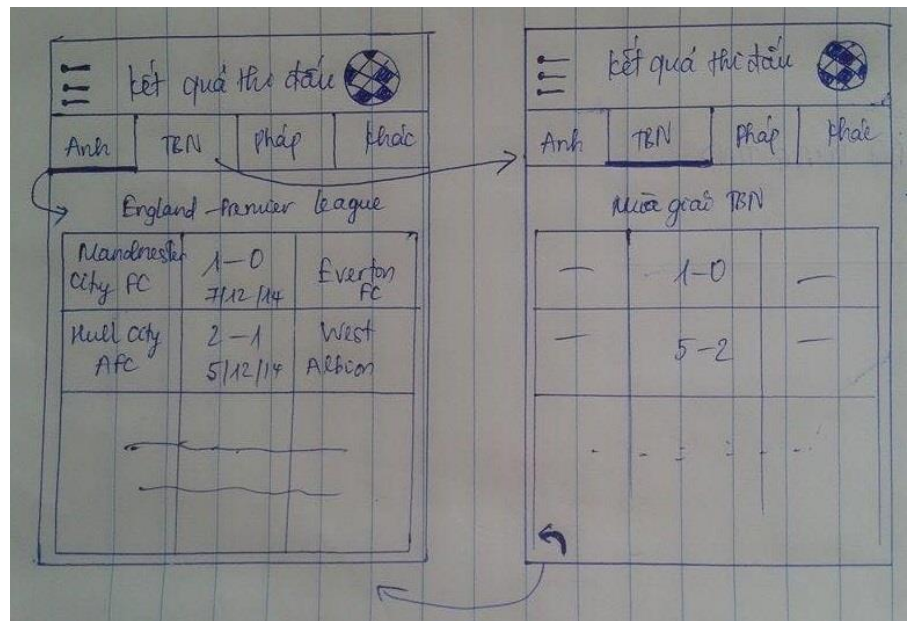 kết quả thi đấu
Anh TBN Pháp khác
England - Premier league
Manchester City FC 1-0 7/12/14 Everton FC
Hull City AFC 2-1 5/12/14 West Albion
kết quả thi đấu
Anh TBN Pháp khác
Mùa giải TBN
1-0
5-2